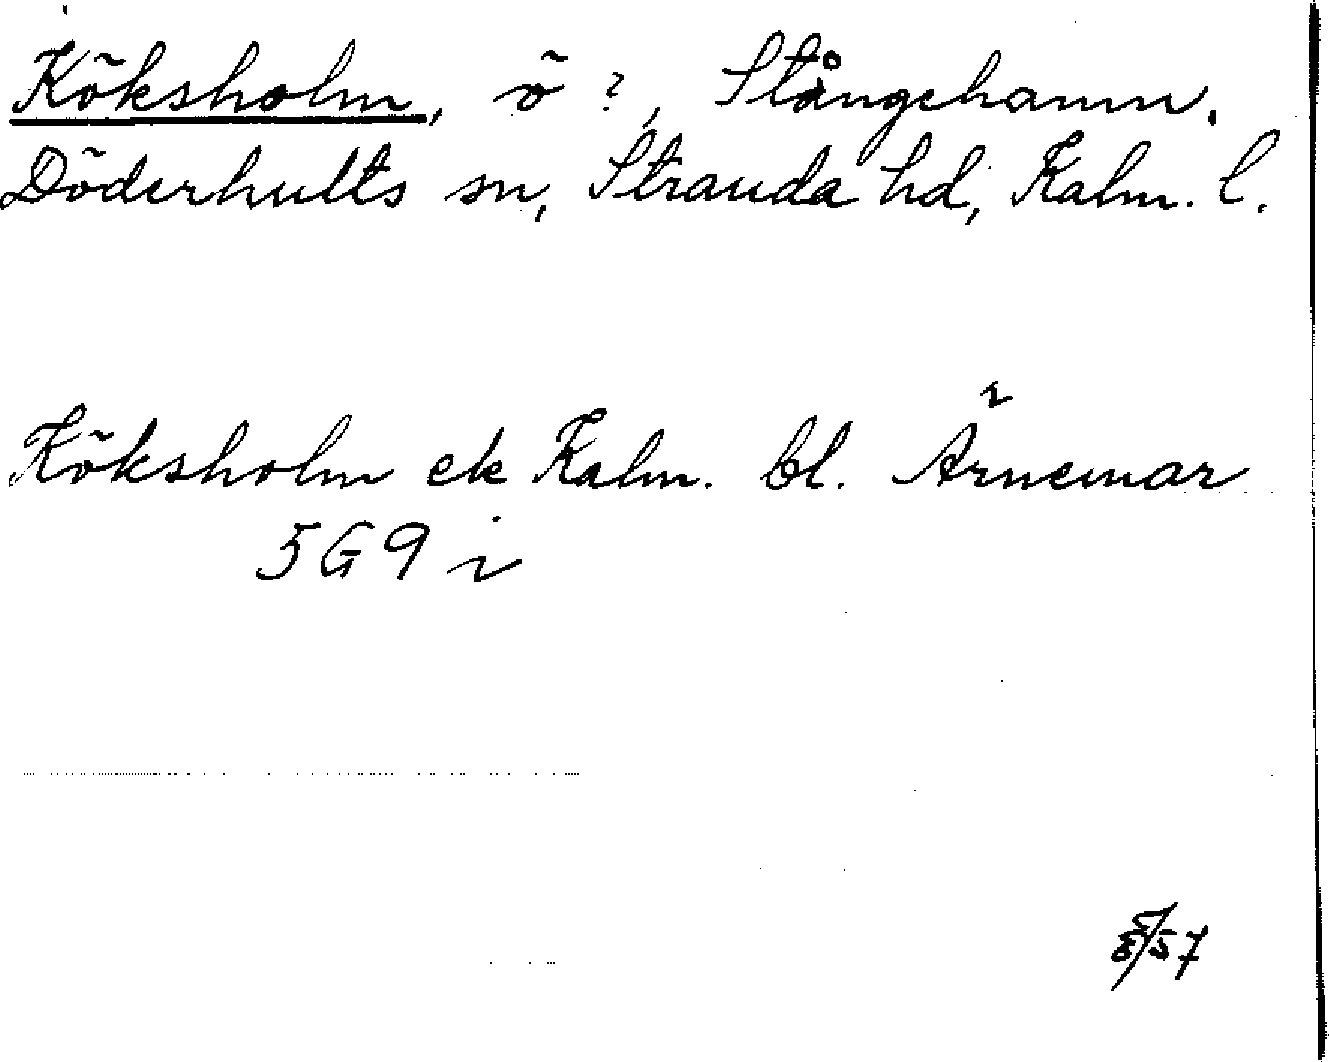 Köksholm, ö ?, Stångehamn.
Döderhults sn, Stranda hd, Kalm. l.
Köksholm ek Kalm. bl. Ärnemar
5G9 i